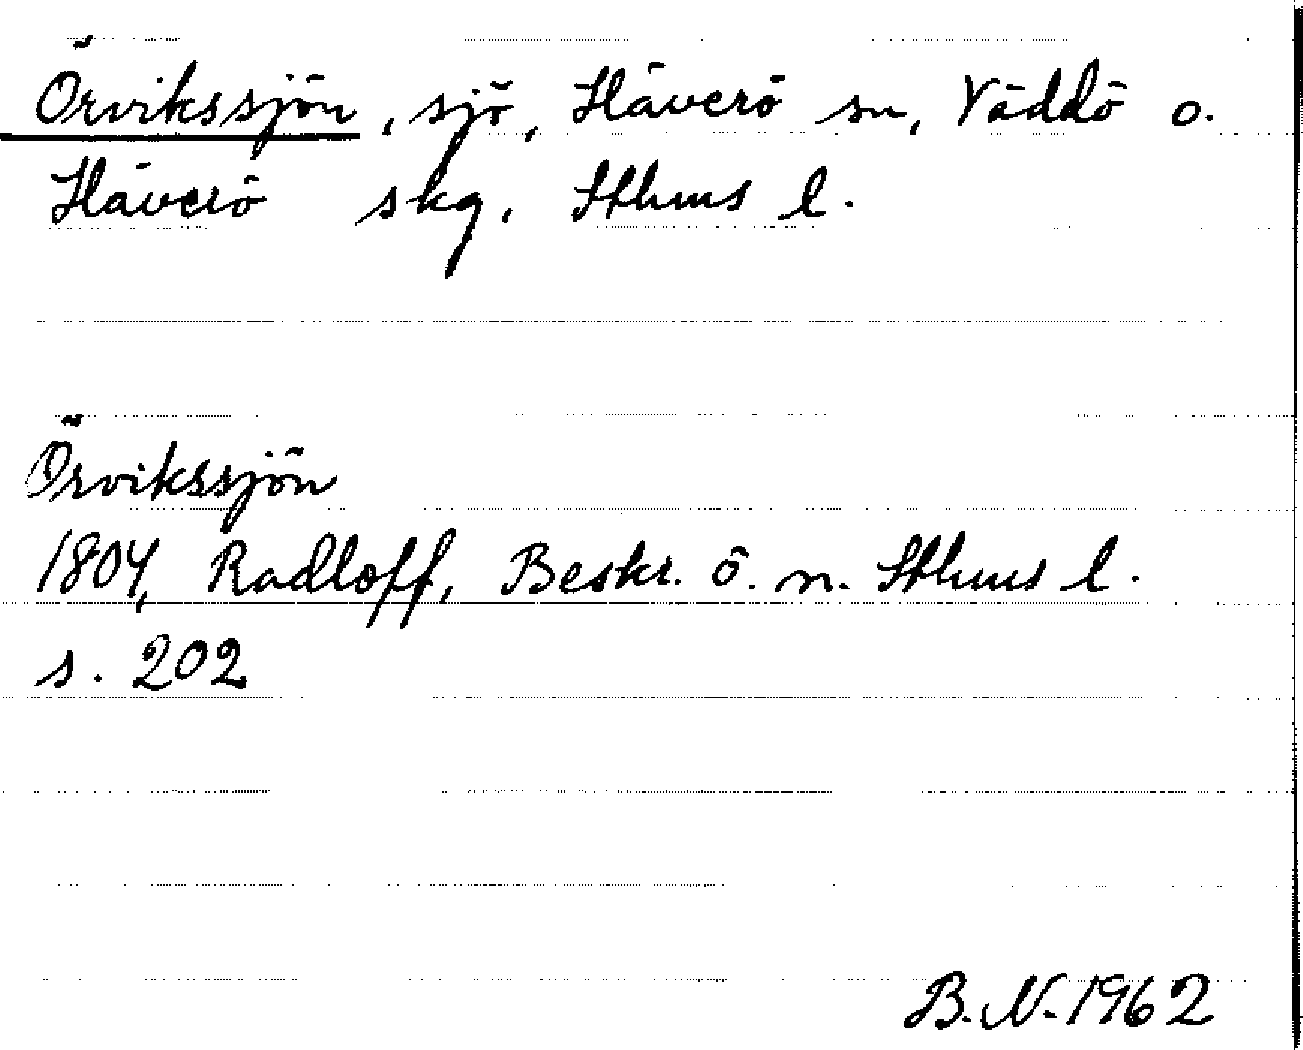 Örvikssjön, sjö, Häverö sn, Väddö o.
Häverö skg, Sthms l.
Örvikssjön
1804, Radloff, Beskr. ö. n. Sthms l.
s. 202
B.N. 1962